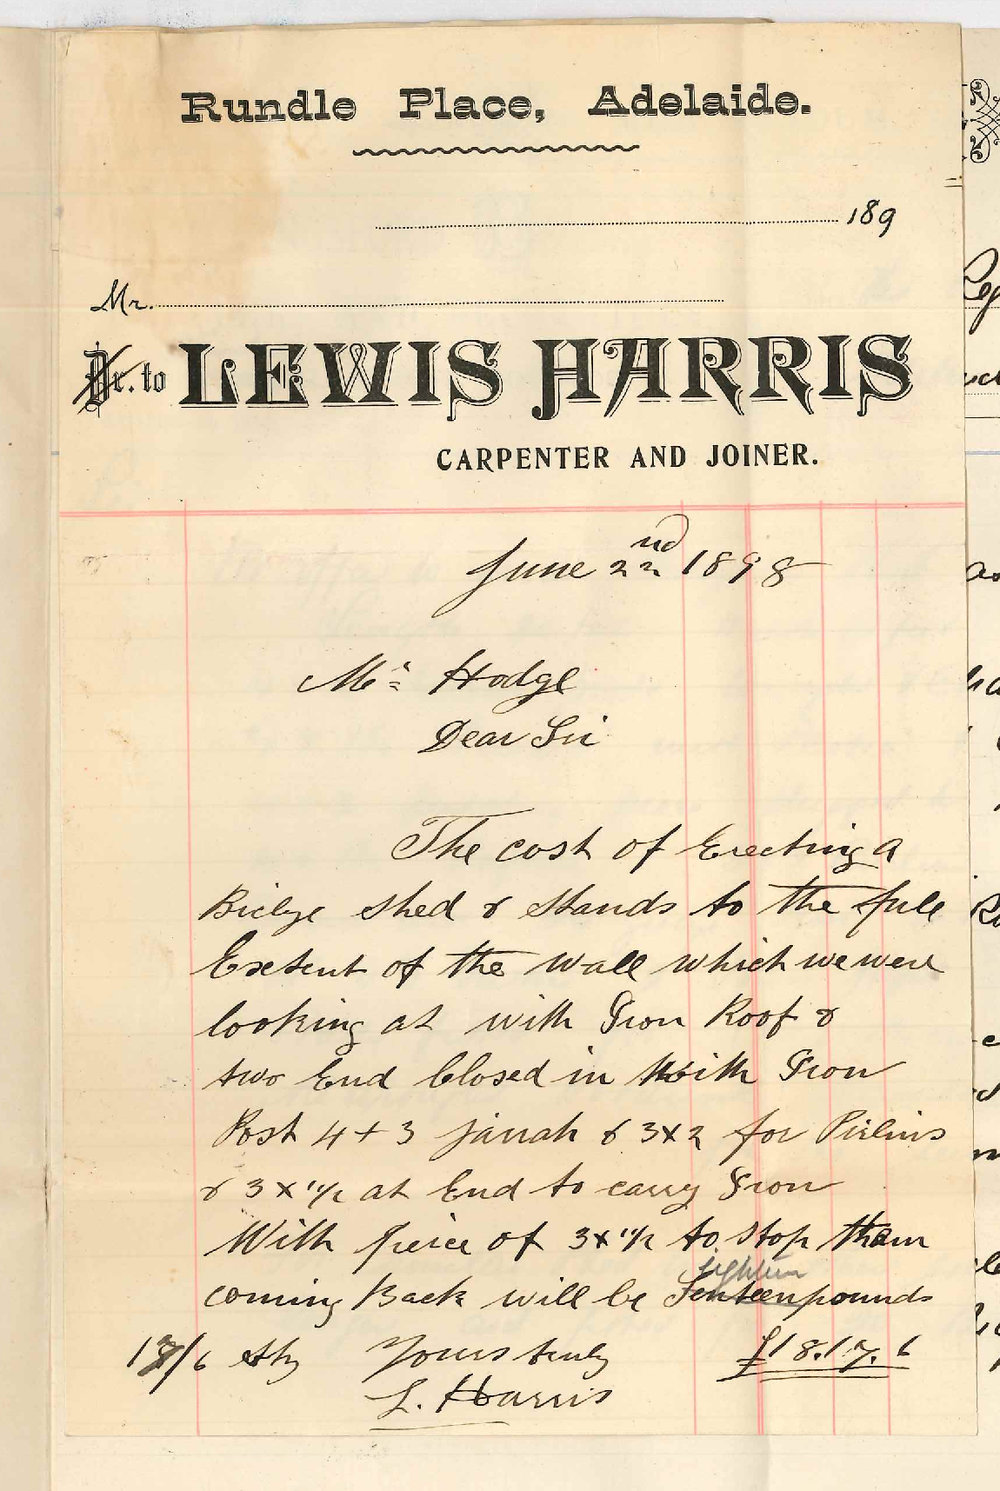 Rundle Place, Adelaide.
189
Mr.
Dr. to LEWIS HARRIS
CARPENTER AND JOINER.
June 22nd 1898
Mr Hodge
Dear Sir
The cost of Erecting a
Biclye shed & Stands to the full
Exstent of the wall which we were
looking at with Iron Roof &
two End Closed in With Iron
Post 4 + 3 jarrah & 3x2 for Perlins
& 3 x 1 1/2 at End to carry Iron
With peice of 3x 1 1/2 to stop them
eighteen
coming Back will be pounds
17/6 Yours truly £18.17.6
L. Harris